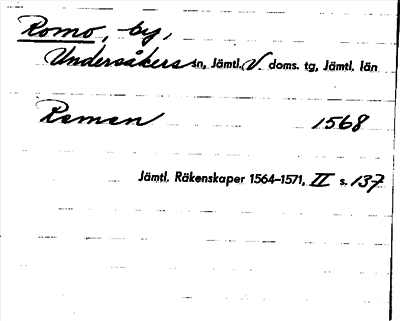 Romo, by,
Undersåkers sn, Jämtl. V. doms. tg, Jämtl. län
Romen 1568
Jämtl. Räkenskaper 1564–1571, II s. 137